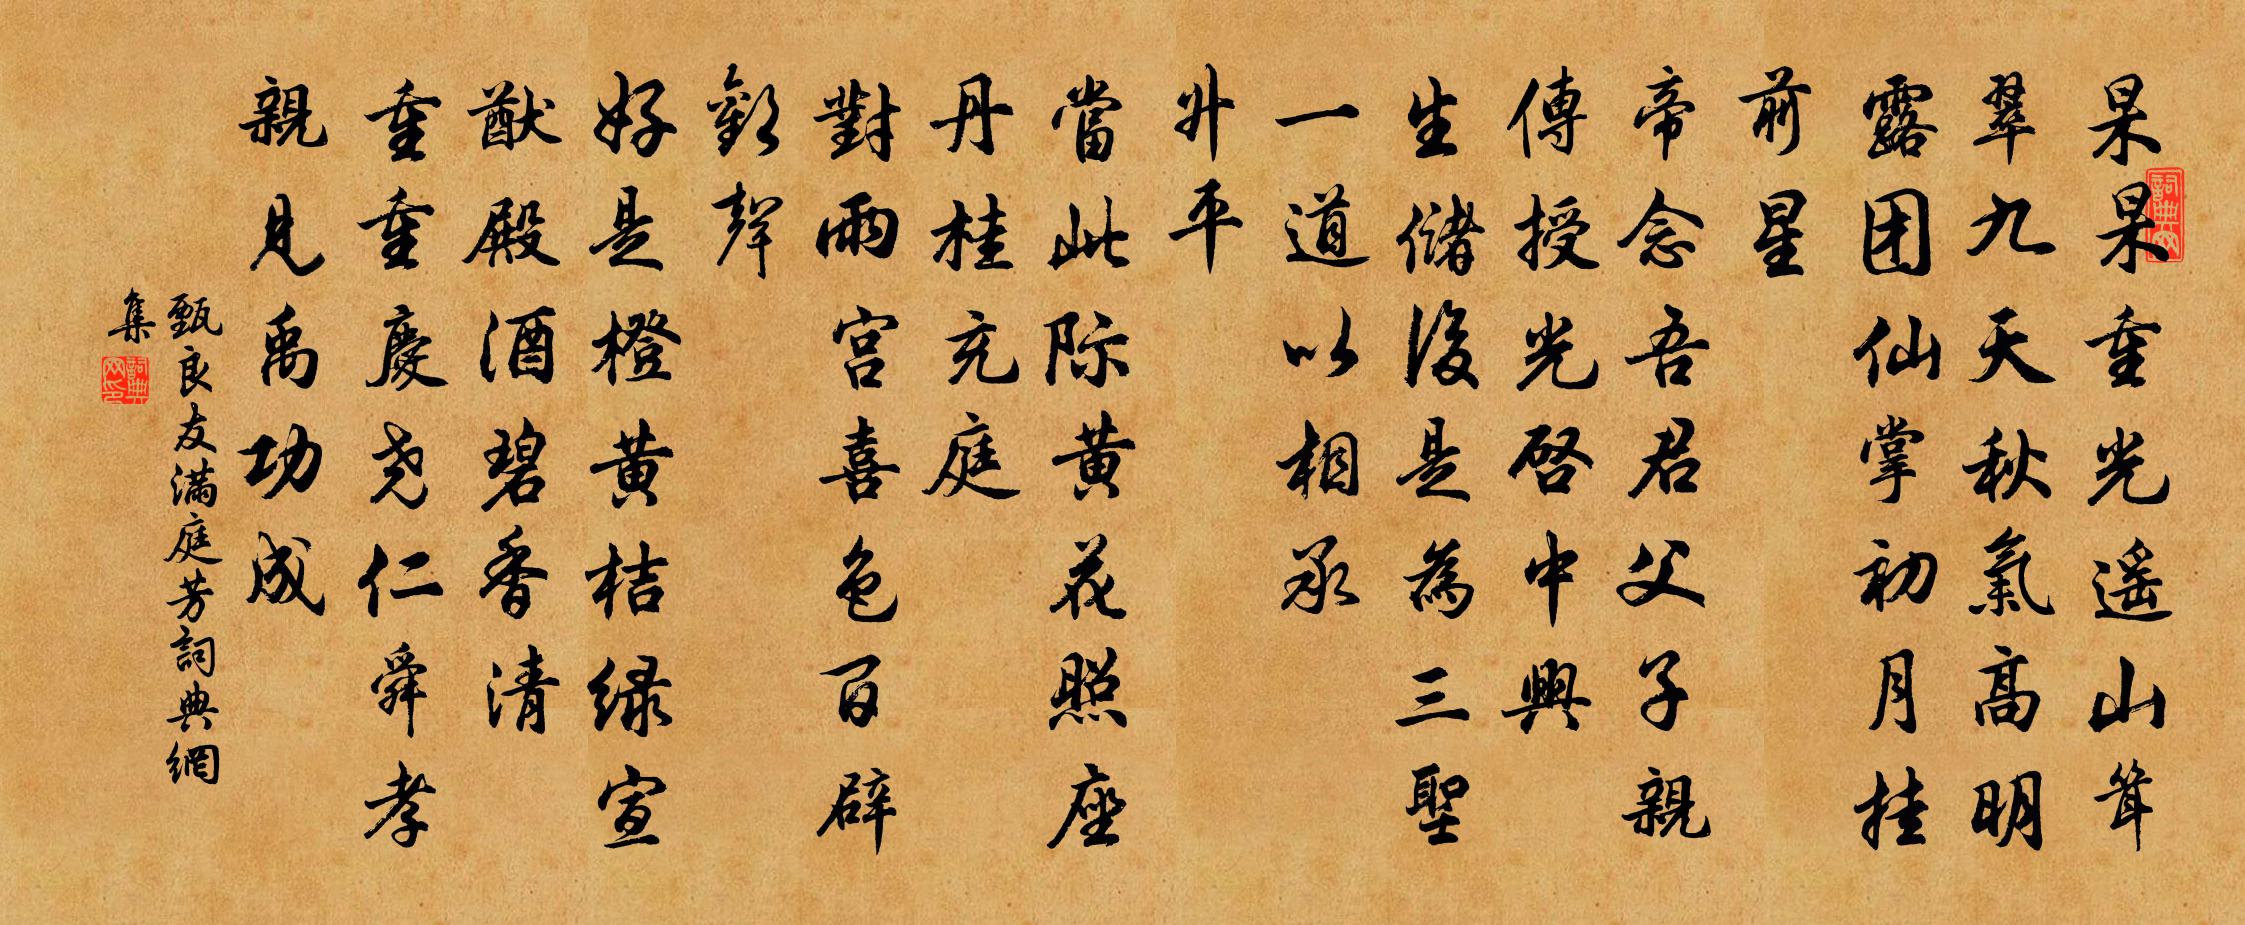 杲杲重光遥山耸
翠九天秋氣高明
露团仙掌初月挂
前星
帝念吾君父子親
傳授光啓中興
生儲後是為三聖
一道以相承
升平
當此际黄花照座
丹桂充庭
對兩宫喜色百辟
歡聲
好是橙黄桔绿宣
猷殿酒碧香清
重重慶尧仁舜孝
親見禹功成
甄良友满庭芳詞典網
集
詞典网
詞典网印